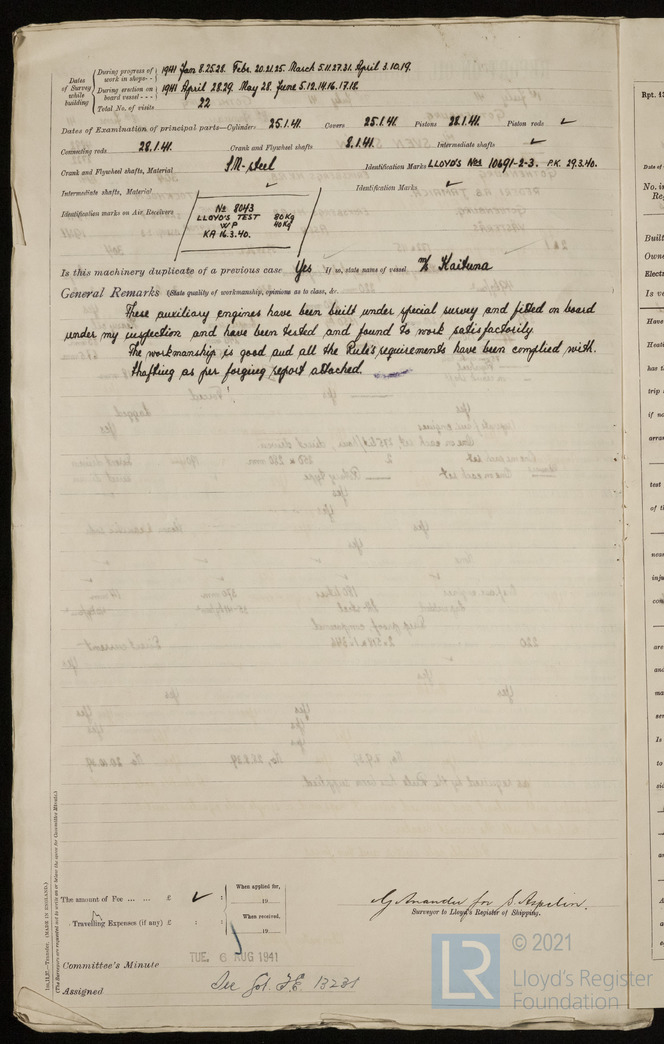 Dates of Survey while building
During progress of work in shops - - 1941 Jan 8.25.28. Febr. 20.21.25. March 5.11.27.31. April 3.10.19.
During erection on board vessel - - - 1941 April 28.29. May 28. June 5.12.14.16.17.18.
Total No. of visits 22
Dates of Examination of principal parts—Cylinders 25.1.41. Covers 25.1.41. Pistons 28.1.41. Piston rods ✓
Connecting rods 28.1.41. Crank and Flywheel shafts 8.1.41. Intermediate shafts ✓
Crank and Flywheel shafts, Material S.M-steel Identification Marks LLOYD'S Nos 10691-2-3. P.K. 29.3.40.
Intermediate shafts, Material ✓ Identification Marks ✓
Identification marks on Air Receivers
No 8043
LLOYD'S TEST 80 Kg
W P 40 Kg
KA 16.3.40.
Is this machinery duplicate of a previous case Yes If so, state name of vessel M/S Kaituna
General Remarks (State quality of workmanship, opinions as to class, &c.
These auxiliary engines have been built under special survey and fitted on board
under my inspection and have been tested and found to work satisfactorily.
The workmanship is good and all the Rule's requirements have been complied with.
Shafting as per forging report attached.
The amount of Fee ... ... £ ✓ : :
When applied for,
19
Travelling Expenses (if any) £ : :
When received,
19
G Anander for S. Aspelin.
Surveyor to Lloyd's Register of Shipping.
Committee's Minute TUE. 6 AUG 1941
Assigned See Got. F.E. 13231
(MADE IN ENGLAND.)
(The Surveyors are requested not to write on or below the space for Committee's Minute.)
Rpt. 13
Date of
No. in
Reg
Built
Owne
Electr
Is ve
Have
Heati
has t
trip
if no
arran
test
of th
near
inju
com
are
and
mea
ser
Is
to
sid
LR
© 2021
Lloyd's Register
Foundation